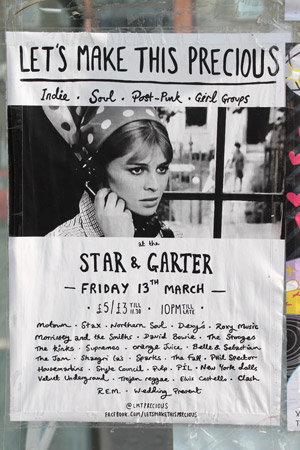 LET'S MAKE THIS PRECIOUS
Indie . Soul . Post-Punk . Girl Groups
at the
STAR & GARTER
— FRIDAY 13TH MARCH —
· £5/£3 TILL 11.30 · 10PM TILL LATE ·
Motown . Stax . Northern Soul . Dexy's . Roxy Music
Morrissey and the Smiths . David Bowie . The Stooges
The Kinks . Supremes . Orange Juice . Belle & Sebastian
The Jam . Shangri (la)s . Sparks . The Fall . Phil Spector
Housemartins . Style Council . Pulp . PiL . New York dolls
Velvet Underground . Trojan reggae . Elvis Costello . Clash
R.E.M. . Wedding Present
@LMTPRECIOUS
FACEBOOK.COM/LETSMAKETHISPRECIOUS